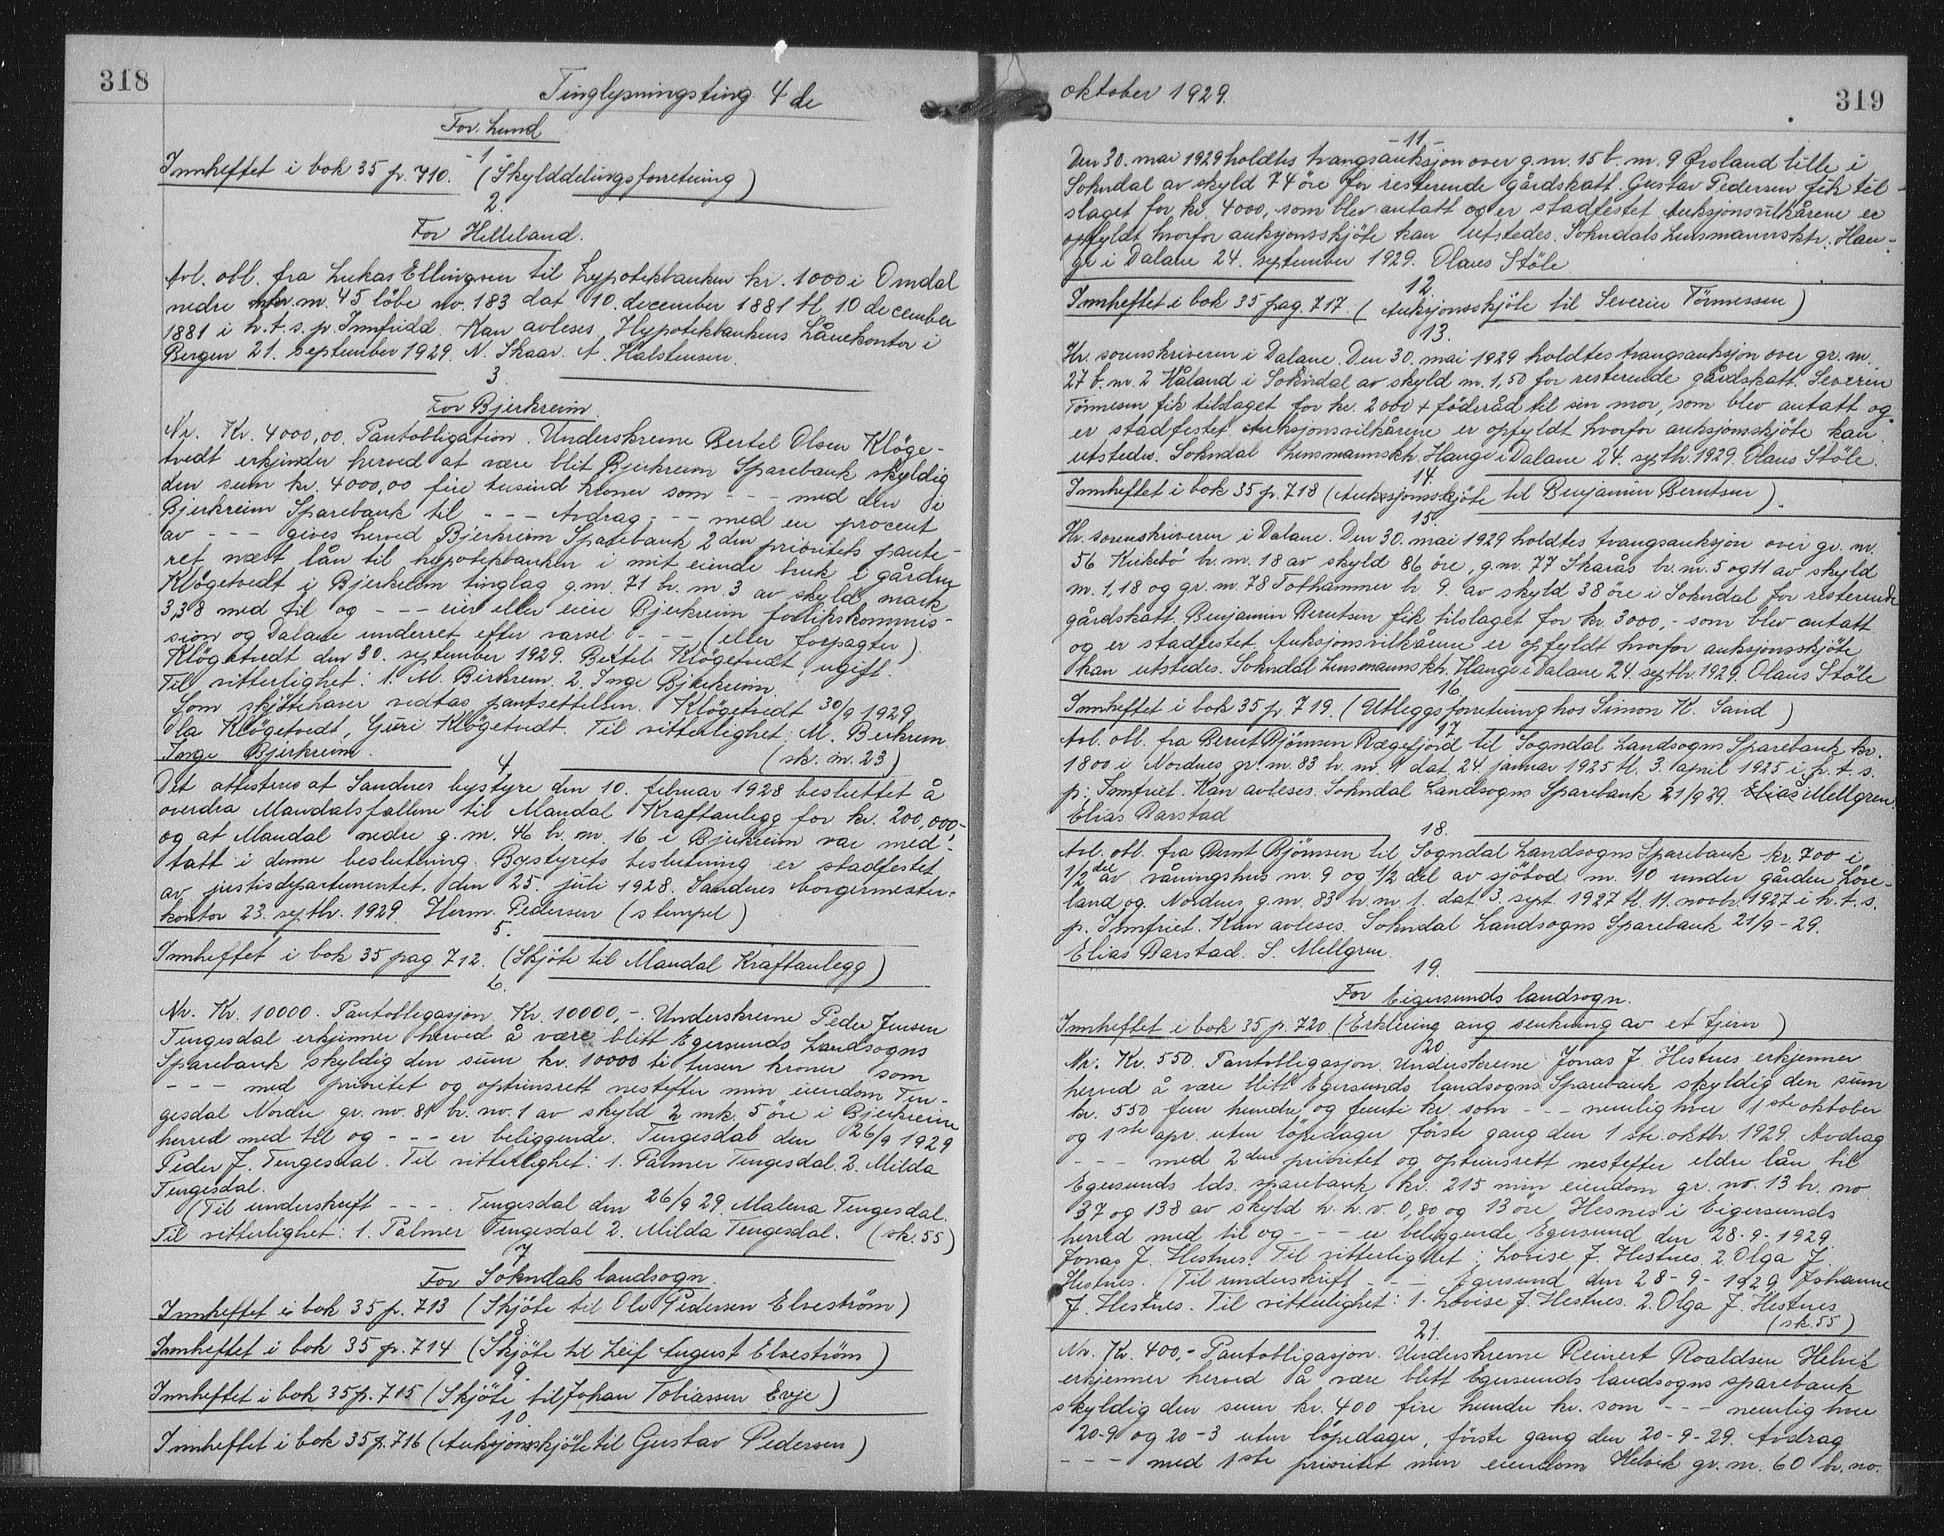 318
Tinglysningsting 4 de
For Lund
- 1 -
Innheftet i bok 35 p. 710. (Skylddelingsforretning)
2.
For Helleland.
Avl. obl. fra Lukas Ellingsen til Hypotekbanken kr. 1000 i Omdal
nedre m. 45 löbe no. 183 dat 10. december 1881 tl. 10 december
1881 i h.t.s. p. Innfridd. Kan avleses. Hypotekbankens Lånekontor i
Bergen 21. september 1929. N. Skaar. A. Halstensen.
3.
For Bjerkreim.
Nr. Kr. 4000,00. Pantobligation. Underskrevne Bertel Olsen Klöge-
tvedt erkjender herved at være blit Bjerkreim Sparebank skyldig
den sum kr. 4000,00 fire tusind kroner som - - - med den i
Bjerkreim Sparebank til - - - Avdrag - - - med en procent
av - - - gives herved Bjerkreim Sparebank 2den prioritets pante-
ret næst lån til hypotekbanken i mit eiende bruk i gården
Klögetvedt i Bjerkreim tinglag g.nr. 71 br. nr. 3 av skyld mark
3,38 med til og - - - eier eller eiere Bjerkreim forlikskommis-
sion og Dalane underret efter varsel - - - (eller forpagter)
Klögetvedt den 30. september 1929. Bertel Klögetvedt, ugift.
Til vitterlighet: 1. M. Birkrem. 2. Inge Bjerkreim.
Som skjötehaver vedtas pantsettelsen. Klögetvedt 30/9 1929
Ola Klögetvedt, Guri Klögetvedt. Til vitterlighet: M. Berkrem
Inge Bjerkreim. (sk. m. 23)
4
Det attesteres at Sandnes bystyre den 10. februar 1928 besluttet å
overdra Maudalsfallene til Maudal Kraftanlegg for kr. 200,000,-
og at Maudal nedre g.nr. 46 br. nr. 16 i Bjerkreim var med-
tatt i denne beslutning. Bystyrets beslutning er stadfestet
av justisdepartementet. den 25. juli 1928. Sandnes borgermester-
kontor 23. septbr. 1929. Herm. Pedersen (stempel)
5.
Innheftet i bok 35 pag 712. (Skjöte til Maudal Kraftanlegg)
6.
Nr. Kr. 10000. Pantobligasjon Kr. 10000,- Underskrevne Peder Jensen
Tengesdal erkjenner herved å være blitt Egersunds Landsogns
Sparebank skyldig den sum kr. 10000 ti tusen kroner som
- - - med prioritet og optrinsrett nestefter min eiendom Ten-
gesdal Nordre gr. no. 81 br. no. 1 av skyld 2 mk. 5 öre i Bjerkreim
herred med til og - - - er beliggende. Tengesdal den 26/9 1929
Peder J. Tengesdal. Til vitterlighet: 1. Palmer Tengesdal. 2. Milda
Tengesdal.
(Til underskrift - - - . Tengesdal den 26/9 29. Malena Tengesdal.
Til vitterlighet: 1. Palmer Tengesdal 2. Milda Tengesdal. (sk. 55)
7
For Sokndals landsogn.
Innheftet i bok 35 p. 713 (Skjöte til Ole Pedersen Elveström)
8
Innheftet i bok 35 p. 714 (Skjöte til Leif August Elveström)
9.
Innheftet i bok 35 p. 715 (Skjöte til Johan Tobiassen Evje)
10.
Innheftet i bok 35 p. 716 (Auksjonsskjöte til Gustav Pedersen)
oktober 1929.
319
- 11. -
Den 30. mai 1929 holdtes tvangsauksjon over g.nr. 15 b. nr. 9 Örsland lille i
Sokndal av skyld 74 öre for resterende gårdskatt. Gustav Pedersen fik til-
slaget for kr. 4000,- som blev antatt og er stadfestet Auksjonsvilkårene er
opfyldt hvorfor auksjonsskjöte kan utstedes. Sokndals Lensmannsktr. Hau-
ge i Dalane 24. september 1929. Olaus Stöle
12.
Innheftet i bok 35 pag. 717. (Auksjonsskjöte til Severin Tönnessen)
13.
Hr. sorenskriveren i Dalane. Den 30. mai 1929 holdtes tvangsauksjon over gr. nr.
27 b. nr. 2 Håland i Sokndal av skyld m. 1,50 for resterende gårdskatt. Severin
Tönnesen fik tilslaget for kr. 2000 + föderåd til sin mor, som blev antatt og
er stadfestet. Auksjonsvilkårene er opfyldt hvorfor auksjonsskjöte kan
utstedes. Sokndal Lensmannsktr. Hauge i Dalane 24. septbr. 1929. Olaus Stöle.
14.
Innheftet i bok 35 p. 718 (Auksjonsskjöte til Benjamin Berntsen).
15.
Hr. sorenskriveren i Dalane. Den 30. mai 1929 holdtes tvangsauksjon over gr. nr.
56 Kirkebö br. nr. 18 av skyld 86 öre, g.nr. 77 Skarås br. nr. 5 og 11 av skyld
m. 1,18 og gr. nr. 78 Tothammer br 9. av skyld 38 öre i Sokndal for resterende
gårdskatt. Benjamin Berntsen fik tilslaget for kr. 3000,- som blev antatt
og er stadfestet. Auksjonsvilkårene er opfyldt hvorfor auksjonsskjöte
kan utstedes. Sokndal Lensmannsktr. Hauge i Dalane 24. septbr. 1929. Olaus Stöle
16.
Innheftet i bok 35 p. 719. (Utleggsforretning hos Simon K. Sand)
17
Avl. obl. fra Bernt Björnsen Rægefjord til Sogndal Landsogns Sparebank kr.
1800 i Nordnes gr. nr. 83 br. nr. 1 dat 24. januar 1925 tl. 3. april 1925 i h.t.s.
p. Innfriet. Kan avleses. Sokndal Landsogns Sparebank 21/9 29. S. Mellgren.
Elias Barstad
18.
Avl. obl. fra Bernt Björnsen til Sogndal Landsogns Sparebank kr. 700 i
1/2 del av våningshus nr. 9 og 1/2 del av sjöbod nr. 10 under gården Löve-
land og Nordnes, g.nr. 83 br. nr. 1. dat 3. sept. 1927 tl. 11. novbr. 1927 i h.t.s.
p. Innfriet. Kan avleses. Sokndal Landsogns Sparebank 21/9 - 29.
Elias Barstad. S. Mellgren.
19.
For Eigersunds landsogn.
Innheftet i bok 35 p. 720 (Erklering ang senkning av et tjern)
20
Nr. Kr. 550. Pantobligasjon. Underskrevne Jonas J. Hestnes erkjenner
herved å være blitt Egersunds landsogns Sparebank skyldig den sum
kr. 550 fem hundre og femti kr. som - - - nemlig hver 1ste oktober
og 1ste apr. uten löpedager förste gang den 1 ste. oktbr. 1929. Avdrag
- - - med 2den prioritet og optrinsrett nestefter eldre lån til
Egersunds lds. sparebank kr. 215 min eiendom gr. no. 13 br. no
37 og 138 av skyld h.h.v. 0,80 og 13 öre, Hesnes i Eigersunds
herred med til og - - - er beliggende. Egersund den 28 - 9 - 1929
Jonas J. Hestnes. Til vitterlighet: Lovise J. Hestnes 2. Olga J.
Hestnes. (Til underskrift - - - Egersund den 28 - 9 - 1929 Johanne
J. Hestnes. Til vitterlighet: 1. Lovise J. Hestnes. 2. Olga J. Hestnes
(sk. 55)
21.
Nr. Kr. 400,- Pantobligasjon. Underskrevne Reinert Roaldsen Helvik
erkjenner herved å være blitt Egersunds landsogns sparebank
skyldig den sum kr. 400 fire hundre kr. som - - - nemlig hver
20-9 og 20-3 uten löpedager, förste gang den 20-9-29. Avdrag
- - - med 1ste prioritet min eiendom Helvik gr. nr. 60 br. no.